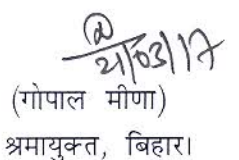 21/03/17
(गोपाल मीणा)
श्रमायुक्त, बिहार।